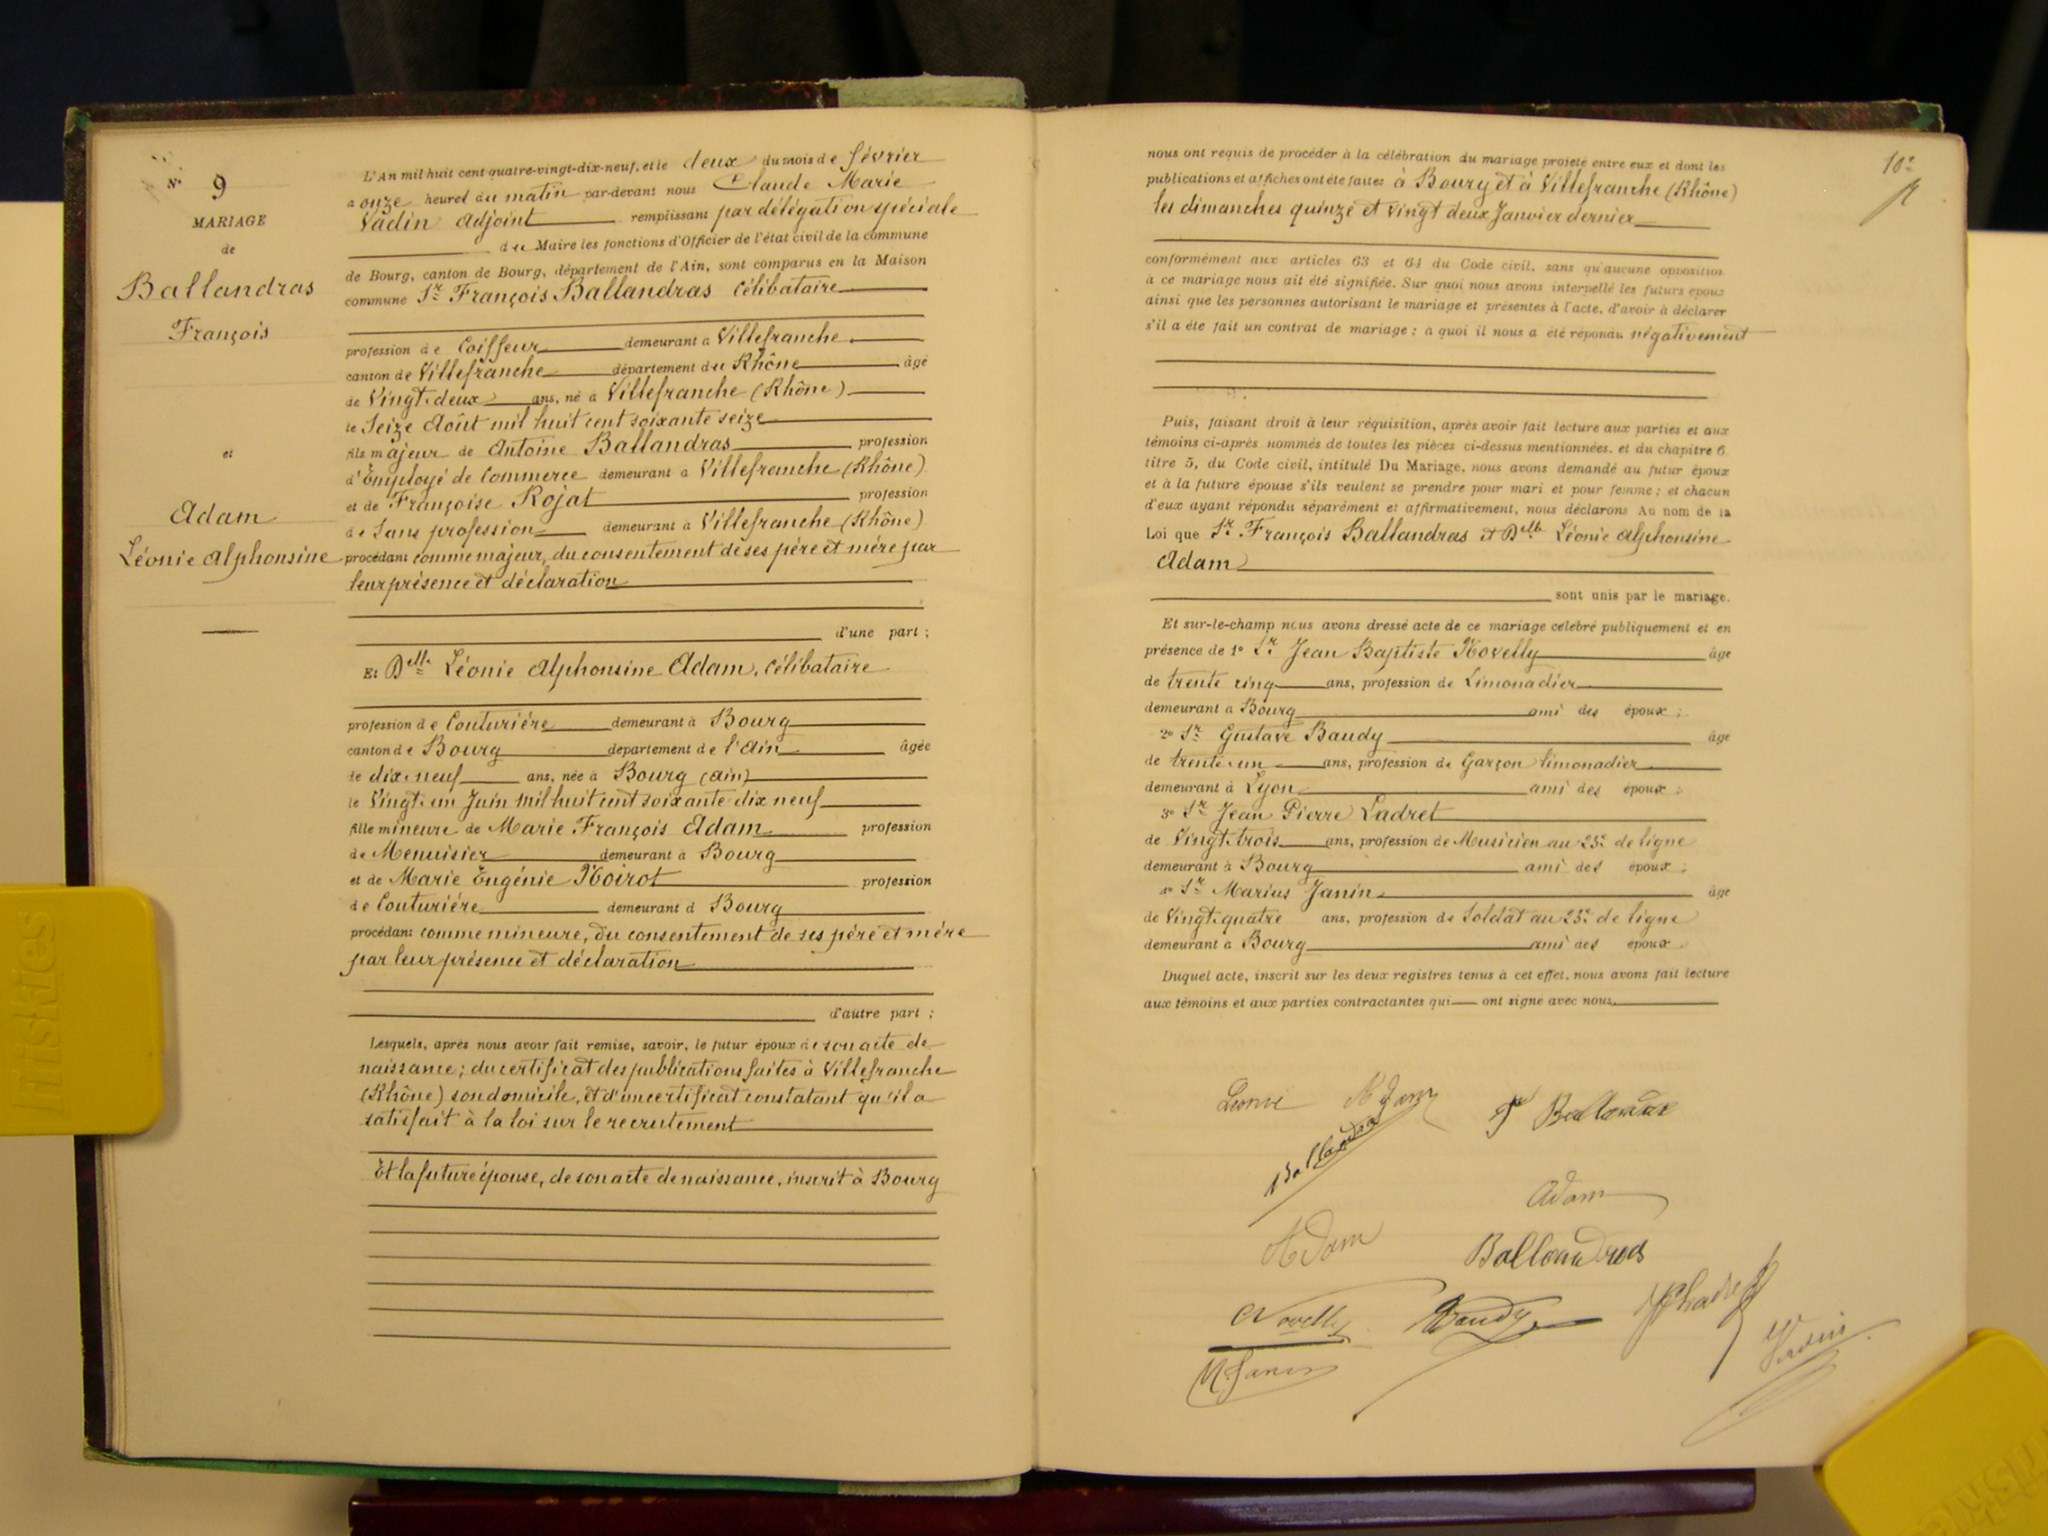 N° 9
MARIAGE
de
Ballandras
François
et
Adam
Léonie Alphonsine
L'An mil huit cent quatre-vingt-dix-neuf, et le deux du mois de février
à onze heures du matin par-devant nous Claude Marie
Vadin adjoint remplissant par délégation spéciale
du Maire les fonctions d'Officier de l'état civil de la commune
de Bourg, canton de Bourg, département de l'Ain, sont comparus en la Maison
commune Sr François Ballandras célibataire
profession de Coiffeur demeurant à Villefranche
canton de Villefranche département du Rhône âgé
de Vingt-deux ans, né à Villefranche (Rhône)
le Seize Août mil huit cent soixante seize
fils majeur de Antoine Ballandras profession
d'Employé de Commerce demeurant à Villefranche (Rhône)
et de Françoise Rojat profession
de Sans profession demeurant à Villefranche (Rhône)
procédant comme majeur, du consentement de ses père et mère par
leur présence et déclaration
d'une part ;
Et Delle Léonie Alphonsine Adam, Célibataire
profession de Couturière demeurant à Bourg
canton de Bourg département de l'Ain âgée
de dix-neuf ans, née à Bourg (Ain)
le Vingt-un Juin mil huit cent soixante dix neuf
fille mineure de Marie François Adam profession
de Menuisier demeurant à Bourg
et de Marie Eugénie Noirot profession
de Couturière demeurant à Bourg
procédant comme mineure, du consentement de ses père et mère
par leur présence et déclaration
d'autre part ;
Lesquels, après nous avoir fait remise, savoir, le futur époux de son acte de
naissance ; du certificat des publications faites à Villefranche
(Rhône) son domicile, et d'un certificat constatant qu'il a
satisfait à la loi sur le recrutement
Et la future épouse, de son acte de naissance, inscrit à Bourg
10e
nous ont requis de procéder à la célébration du mariage projeté entre eux et dont les
publications et affiches ont été faites à Bourg et à Villefranche (Rhône)
les dimanches quinze et vingt deux Janvier dernier
conformément aux articles 63 et 64 du Code civil, sans qu'aucune opposition
à ce mariage nous ait été signifiée. Sur quoi nous avons interpellé les futurs époux
ainsi que les personnes autorisant le mariage et présentes à l'acte, d'avoir à déclarer
s'il a été fait un contrat de mariage ; à quoi il nous a été répondu négativement
Puis, faisant droit à leur réquisition, après avoir fait lecture aux parties et aux
témoins ci-après nommés de toutes les pièces ci-dessus mentionnées, et du chapitre 6
titre 5, du Code civil, intitulé Du Mariage, nous avons demandé au futur époux
et à la future épouse s'ils veulent se prendre pour mari et pour femme ; et chacun
d'eux ayant répondu séparément et affirmativement, nous déclarons Au nom de la
Loi que Sr François Ballandras et Delle Léonie Alphonsine
Adam
sont unis par le mariage.
Et sur-le-champ nous avons dressé acte de ce mariage célébré publiquement et en
présence de 1° Sr Jean Baptiste Novelly âgé
de trente cinq ans, profession de Limonadier
demeurant à Bourg ami des époux ;
2° Sr Gustave Baudy âgé
de trente-un ans, profession de Garçon limonadier
demeurant à Lyon ami des époux ;
3° Sr Jean Pierre Ladret
de Vingt-trois ans, profession de Musicien au 23e de ligne
demeurant à Bourg ami des époux ;
4° Sr Marius Janin âgé
de Vingt-quatre ans, profession de Soldat au 23e de ligne
demeurant à Bourg ami des époux
Duquel acte, inscrit sur les deux registres tenus à cet effet, nous avons fait lecture
aux témoins et aux parties contractantes qui ont signé avec nous
Léonie Adam
Ballandras
Ballandras
Adam
Adam
Ballandras
Novelly
Baudy
M. Janin
Vadin